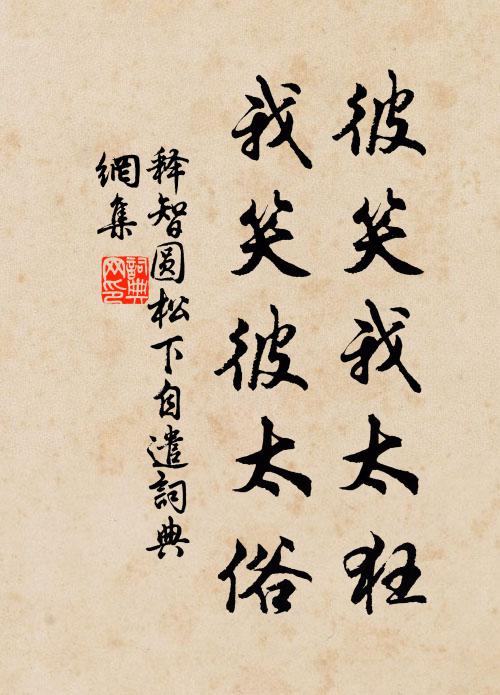 彼笑我太狂
我笑彼太俗
释智圆松下自遣詞典
網集
詞典
网印